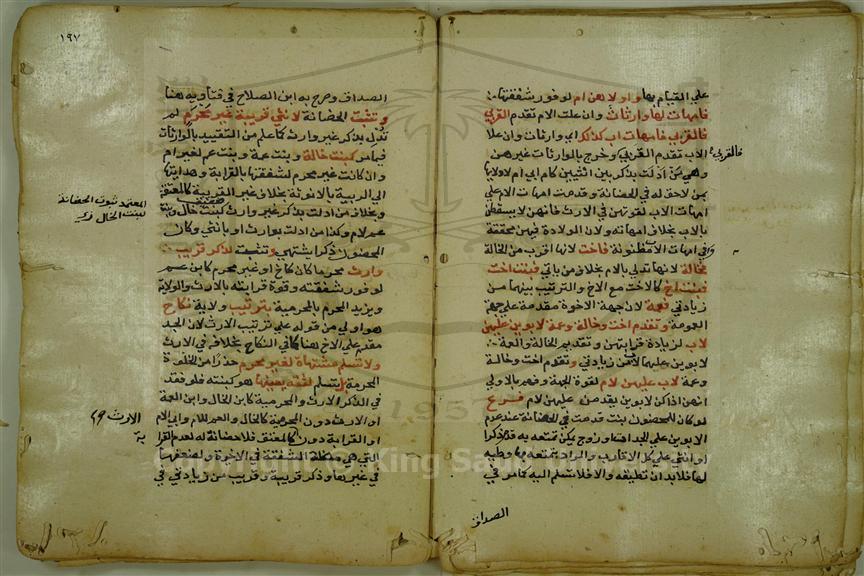 علي القيام بها واولاهن ام لوفور شفقتها
فامهات لها وارثات وان علت الام تقدم القربي
فالقربي فامهات اب كذلك اي وارثات وان علا
الاب تقدم القربي وخرج بالوارثات غيرهن
وهي من ادلت بذكر بين انثيين كام ابي ام لادلائها
بمن لاحق له في الحضانة وقدمت امهات الام علي
امهات الاب لقوتهن في الارث فانهن لا يسقطن
بالاب بخلاف امهاته ولان الولادة فيهن محققة
وفي امهات الاب مظنونة فاخت لانها اقرب من الخالة
فخالة لانها تدلي بالام بخلاف من ياتي فبنت اخت
فبنت اخ كالاخت مع الاخ والترتيب بينهما من
زيادتي فعمة لان جهة الاخوة مقدمة علي جهة
العمومة وتقدم اخت وخالة وعمة لابوين عليهن
لاب لزيادة قرابتهن وتقديم الخالة والعمة
لابوين عليهما لاب من زيادتي وتقدم اخت وخالة
وعمة لاب عليهن لام لقوة الجهة وفهم بالاولي
انهن اذا كن لابوين يقدمن عليهن لام فرع
لو كان للمحضون بنت قدمت في الحضانة عند عدم
الابوين علي الجدات او زوج يمكن تمتعه به قدم ذكرا
او انثي علي كل الاقارب والمراد بتمتعه بها وطيه
لها فلا بد ان تطيقه والا فلا تسلم اليه كما مر في
الصداق
فالقربي
١٩٧
الصداق وصرح به ابن الصلاح في فتاويه هنا
وتثبت الحضانة لانثي قريبة غير محرم لم
تدل بذكر غير وارث كما علم من التقييد بالوارثات
فيما مر كبنت خالة وبنت عمة وبنت عم لغير ام
وان كانت غير محرم لشفقتها بالقرابة وهدايتها
الي التربية بالانوثة بخلاف غير القريبة كالمعتقة
وبخلاف من ادلت بذكر غير وارث كبنت خال وبنت
عم لام وكذا من ادلت بوارث او بانثي وكان
المحضون ذكرا يشتهي وتثبت لذكر قريب
وارث محرما كان كاخ او غير محرم كابن عم
لوفور شفقته وقوة قرابته بالارث والولاية
ويزيد المحرم بالمحرمية بترتيب ولاية نكاح
هو اولي من قوله علي ترتيب الارث لان الجد
مقدم علي الاخ هنا كما في النكاح بخلافه في الارث
ولا تسلم مشتهاة لغير محرم حذرا من الخلوة
المحرمة بل تسلم لثقة يعينها هو كبنته فلو فقد
في الذكر الارث والمحرمية كابن الخال وابن العمة
او الارث دون المحرمية كالخال والعم للام وابي الام
او القرابة دون كالمعتق فلا حضانة له لعدم القرابة
التي هي مظنة الشفقة في الاخيرة ولضعفها
في غيرها وذكر قريبة وقريب من زيادتي في
المعتمد ثبوت الحضانة
لبنت الخال زي
الارث